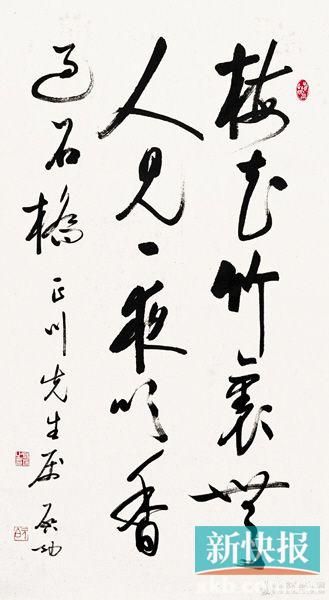 梅花竹裏無
人見一夜吹香
過石橋 正川先生属 启功
新快报